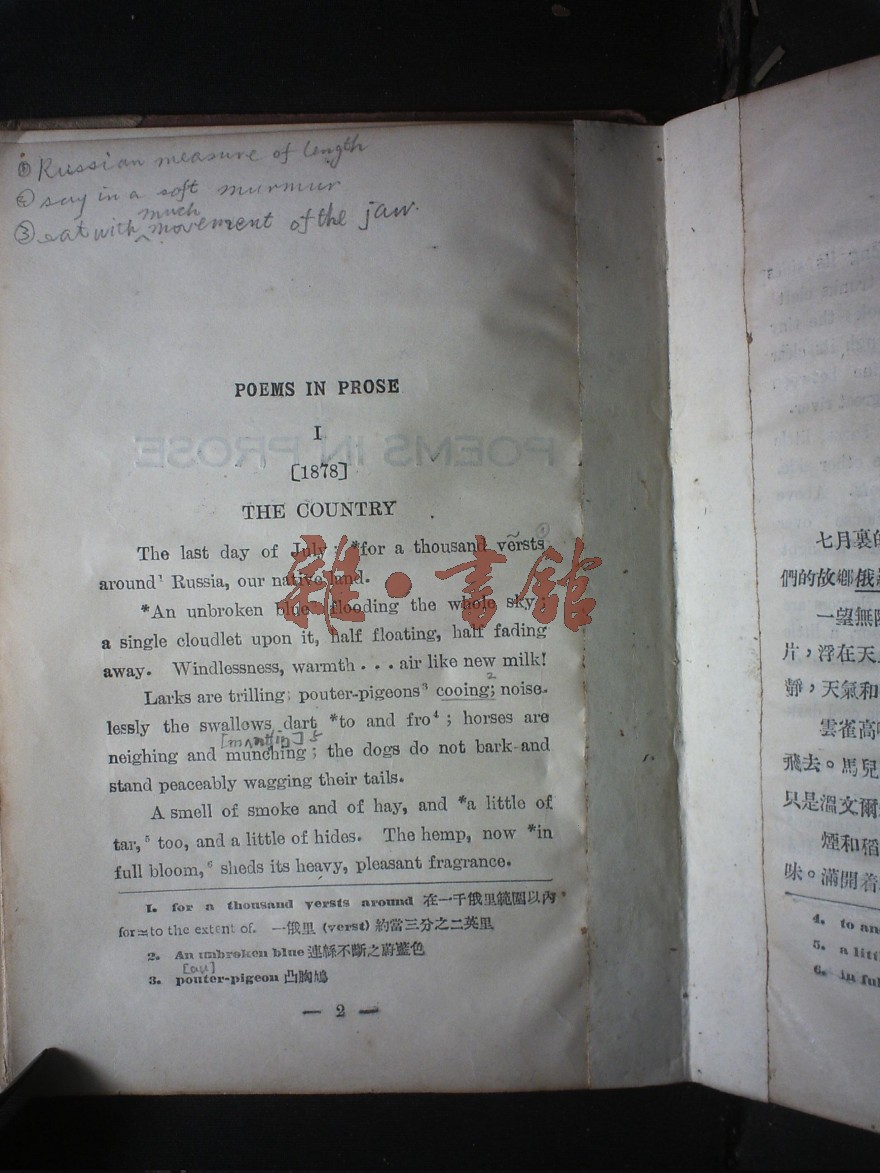 ① Russian measure of length
② say in a soft murmur
③ eat with much movement of the jaw.
POEMS IN PROSE
I
[1878]
THE COUNTRY
The last day of July; *for a thousand versts ①
around¹ Russia, our native land.
*An unbroken blue flooding the whole sky;
a single cloudlet upon it, half floating, half fading
away. Windlessness, warmth . . . air like new milk!
Larks are trilling; pouter-pigeons³ cooing; 2 noise-
lessly the swallows dart *to and fro⁴; horses are
neighing and munching; the dogs do not bark and
stand peaceably wagging their tails.
A smell of smoke and of hay, and *a little of
tar,⁵ too, and a little of hides. The hemp, now *in
full bloom,⁶ sheds its heavy, pleasant fragrance.
1. for a thousand versts around 在一千俄里範圍以內
for=to the extent of. 一俄里 (verst) 約當三分之二英里
2. An unbroken blue 連緜不斷之蔚藍色
[au]
3. pouter-pigeon 凸胸鳩
— 2 —
雜·書館
七月裏的
們的故鄉俄
一望無
片，浮在天
靜，天氣和
雲雀高
飛去。馬兒
只是溫文爾
煙和稻
味。滿開着
4. to an
5. a litt
6. in ful